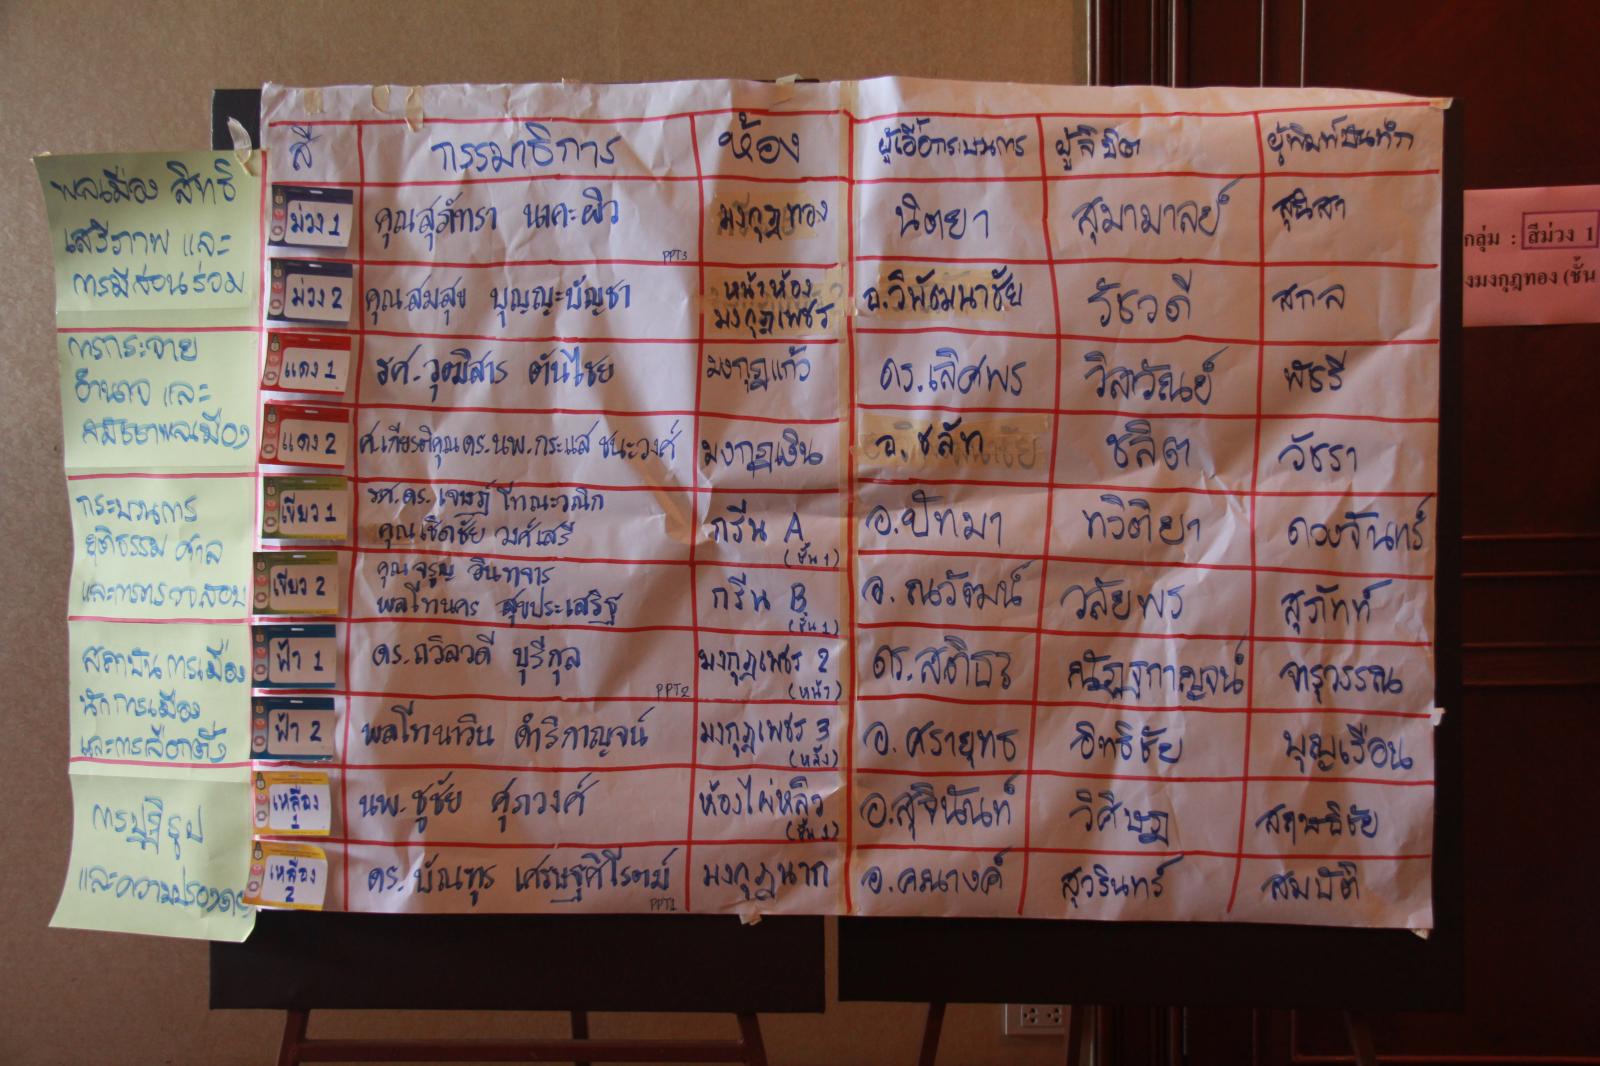 สี กรรมาธิการ ห้อง ผู้เอื้อกระบวนการ ผู้จดบันทึก ผู้พิมพ์บันทึก
พลเมือง สิทธิ
เสรีภาพ และ
การมีส่วนร่วม
ม่วง 1 คุณสุภัทรา นาคะผิว PPT3 มงกุฎทอง นิตยา สุมามาลย์ สุนิสา
ม่วง 2 คุณสมสุข บุญญะบัญชา หน้าห้อง มงกุฎเพชร รัชวดี สกล
การกระจาย
อำนาจ และ
แดง 1 รศ.วุฒิสาร ตันไชย มงกุฎแก้ว ดร.เลิศพร วิลาวัณย์ พัชรี
แดง 2 ศ.เกียรติคุณ ดร.นพ.กระแส ชนะวงศ์ มงกุฎเงิน อ.ชลัท ชลิต วัชรา
กระบวนการ
ยุติธรรม ศาล
และการตรวจสอบ
เขียว 1 รศ.ดร.เจษฎ์ โทณะวณิก
คุณเชิดชัย วงศ์เสรี กรีน A (ชั้น 1) อ.ปัทมา ทวิติยา ดวงจันทร์
เขียว 2 คุณจรูญ อินทจาร
พลโทนคร สุขประเสริฐ กรีน B (ชั้น 1) อ.ณวัฒน์ วลัยพร สุภัทท์
สถาบันการเมือง
นักการเมือง
และการเลือกตั้ง
ฟ้า 1 ดร.ถวิลวดี บุรีกุล PPT2 มงกุฎเพชร 2 (หน้า) ดร.สติธร ณัฏฐกาญจน์ จารุวรรณ
ฟ้า 2 พลโทนาวิน ดำริกาญจน์ มงกุฎเพชร 3 (หลัง) อ.ศรายุทธ อิทธิชัย บุญเรือน
การปฏิรูป
และความปรองดอง
เหลือง 1 นพ.ชูชัย ศุภวงศ์ ห้องไผ่หลิว (ชั้น 1) อ.สุจินันท์ วิศิษฎ
เหลือง 2 ดร.บัณฑูร เศรษฐศิโรตม์ PPT1 มงกุฎนาก อ.คนางค์ สุวรินทร์ สมบัติ
กลุ่ม : สีม่วง 1
งมงกุฎทอง (ชั้น